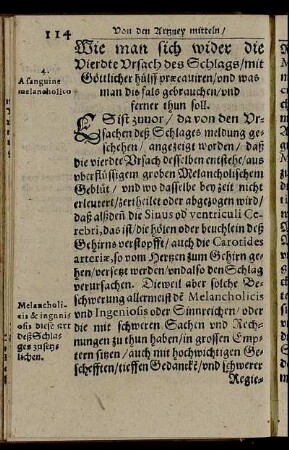 114
Von den Artzney mitteln/
Wie man sich wider die
Vierdte Vrsach des Schlags/mit
Göttlicher hülff præcauiren/vnd was
man diß fals gebrauchen/vnd
ferner thun soll.
4.
A sanguine
melancholico
ES ist zuuor/ da von den Vr-
sachen deß Schlages meldung ge-
schehen/ angezeigt worden/ daß
die vierdte Vrsach desselben entstehe/aus
vberflüssigem groben Melancholischem
Geblüt/ vnd wo dasselbe bey zeit nicht
erleutert/zertheilet oder abgezogen wird/
daß alßdeñ die Sinus oď ventriculi Ce-
rebri, das ist/die hölen oder beuchlein deß
Gehirns verstopfft/auch die Carotides
arteriæ, so vom Hertzen zum Gehirn ge-
hen/versetzt werden/vnd also den Schlag
verursachen. Dieweil aber solche Be-
schwerung allermeist dẽ Melancholicis
vnd Ingeniosis oder Sinnreichen/ oder
die mit schweren Sachen vnd Rech-
nungen zu thun haben/in grossen Emp-
tern sitzen/auch mit hochwichtigen Ge-
schefften/tieffen Gedanckẽ/ vnd schwerer
Regie-
Melancholi-
cis & ingeni-
osis diese art
deß Schla-
ges zusetz-
lichen.